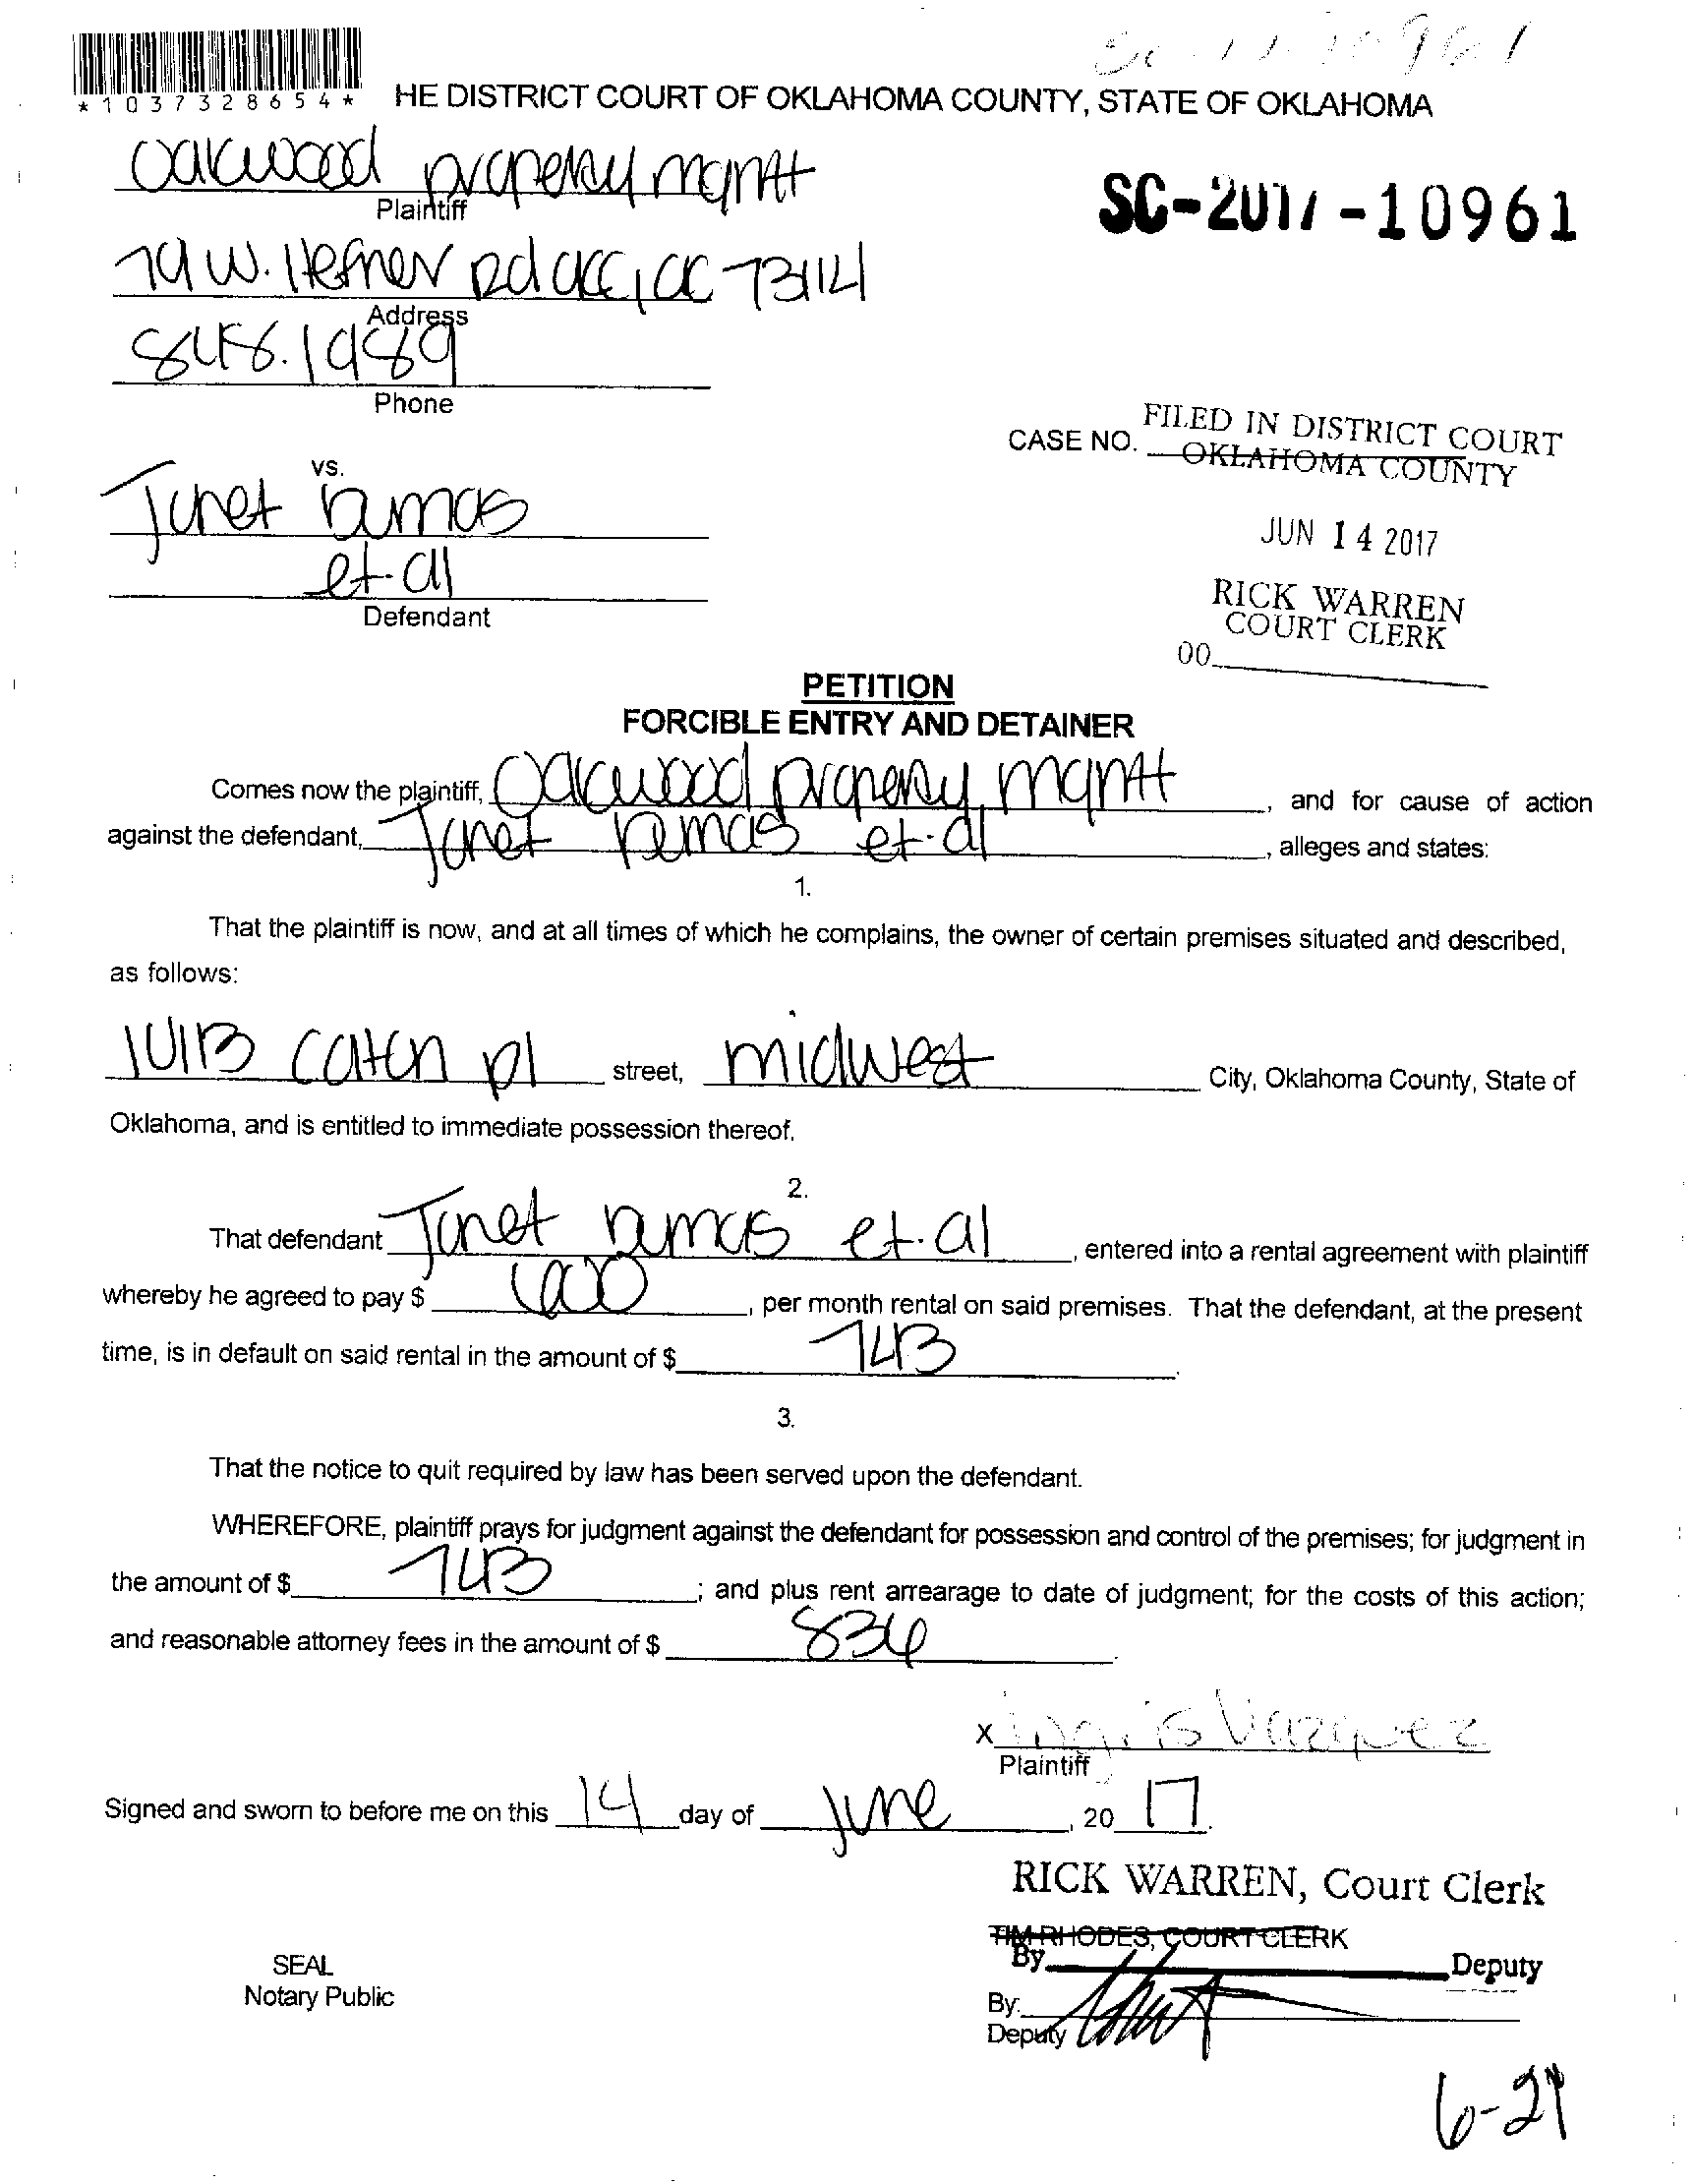 *1037328654*
HE DISTRICT COURT OF OKLAHOMA COUNTY, STATE OF OKLAHOMA
Oakwood property mgmtt
Plaintiff
SC-2017-10961
W. Hefner Rd OKC, OK 73114
Address
848.1989
Phone
CASE NO.
FILED IN DISTRICT COURT
OKLAHOMA COUNTY
JUN 14 2017
RICK WARREN
COURT CLERK
00
vs.
Janet
et-al
Defendant
PETITION
FORCIBLE ENTRY AND DETAINER
Comes now the plaintiff, Oakwood property mgmtt, and for cause of action
against the defendant, Janet et-al, alleges and states:
1.
That the plaintiff is now, and at all times of which he complains, the owner of certain premises situated and described,
as follows:
pl street, midwest City, Oklahoma County, State of
Oklahoma, and is entitled to immediate possession thereof.
2.
That defendant Janet et-al, entered into a rental agreement with plaintiff
whereby he agreed to pay $, per month rental on said premises. That the defendant, at the present
time, is in default on said rental in the amount of $ 743.
3.
That the notice to quit required by law has been served upon the defendant.
WHEREFORE, plaintiff prays for judgment against the defendant for possession and control of the premises; for judgment in
the amount of $ 743; and plus rent arrearage to date of judgment; for the costs of this action;
and reasonable attorney fees in the amount of $ 836.
x Ingris Vazquez
Plaintiff
Signed and sworn to before me on this 14 day of June, 20 17.
RICK WARREN, Court Clerk
TIM RHODES, COURT CLERK
By Deputy
SEAL
Notary Public
By:
Deputy